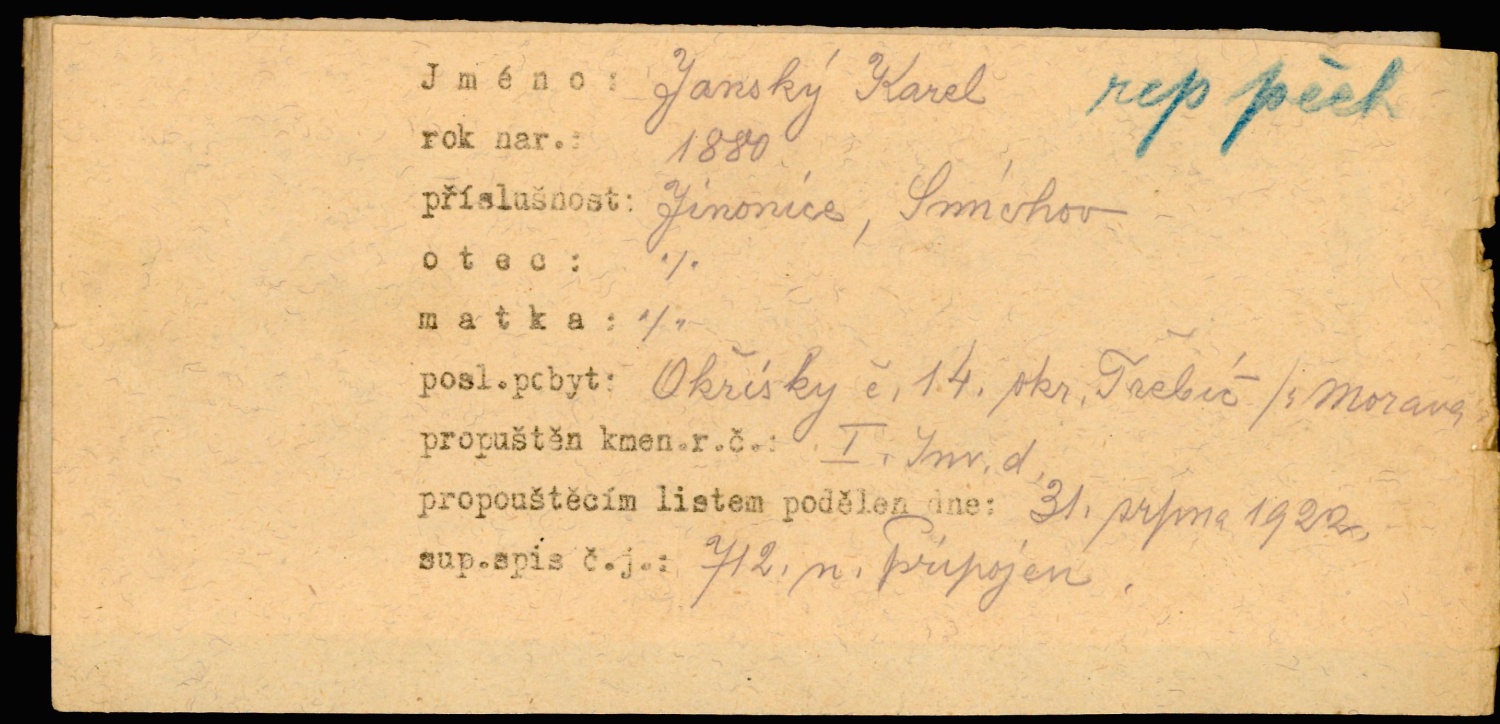 Jméno: Janský Karel rep pěch
rok nar.: 1880
příslušnost: Jinonice, Smíchov
otec: ·/·
matka: ·/·
posl.pobyt: Okřísky č. 14. okr. Třebíč /: Morava
propuštěn kmen.r.č.: I. Inv. d.
propouštěcím listem podělen dne: 31. srpna 1922.
sup.spis č.j.: 712. n. Připojen.